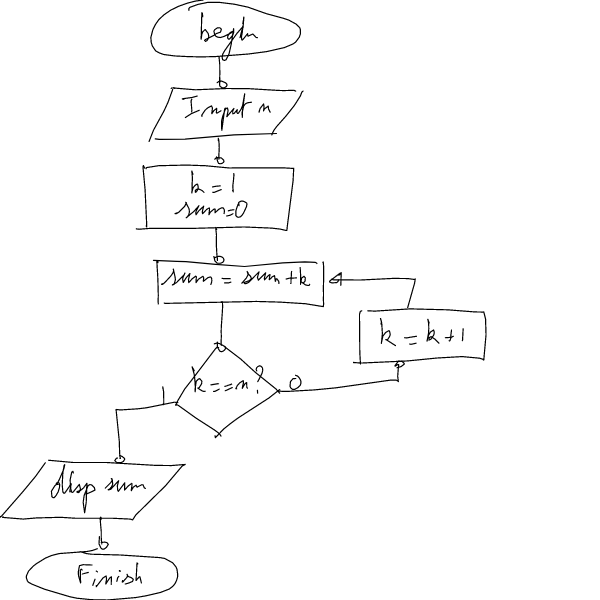 begin
Input n
k = 1
sum=0
sum = sum + k
k = k + 1
k==n?
0
1
disp sum
Finish